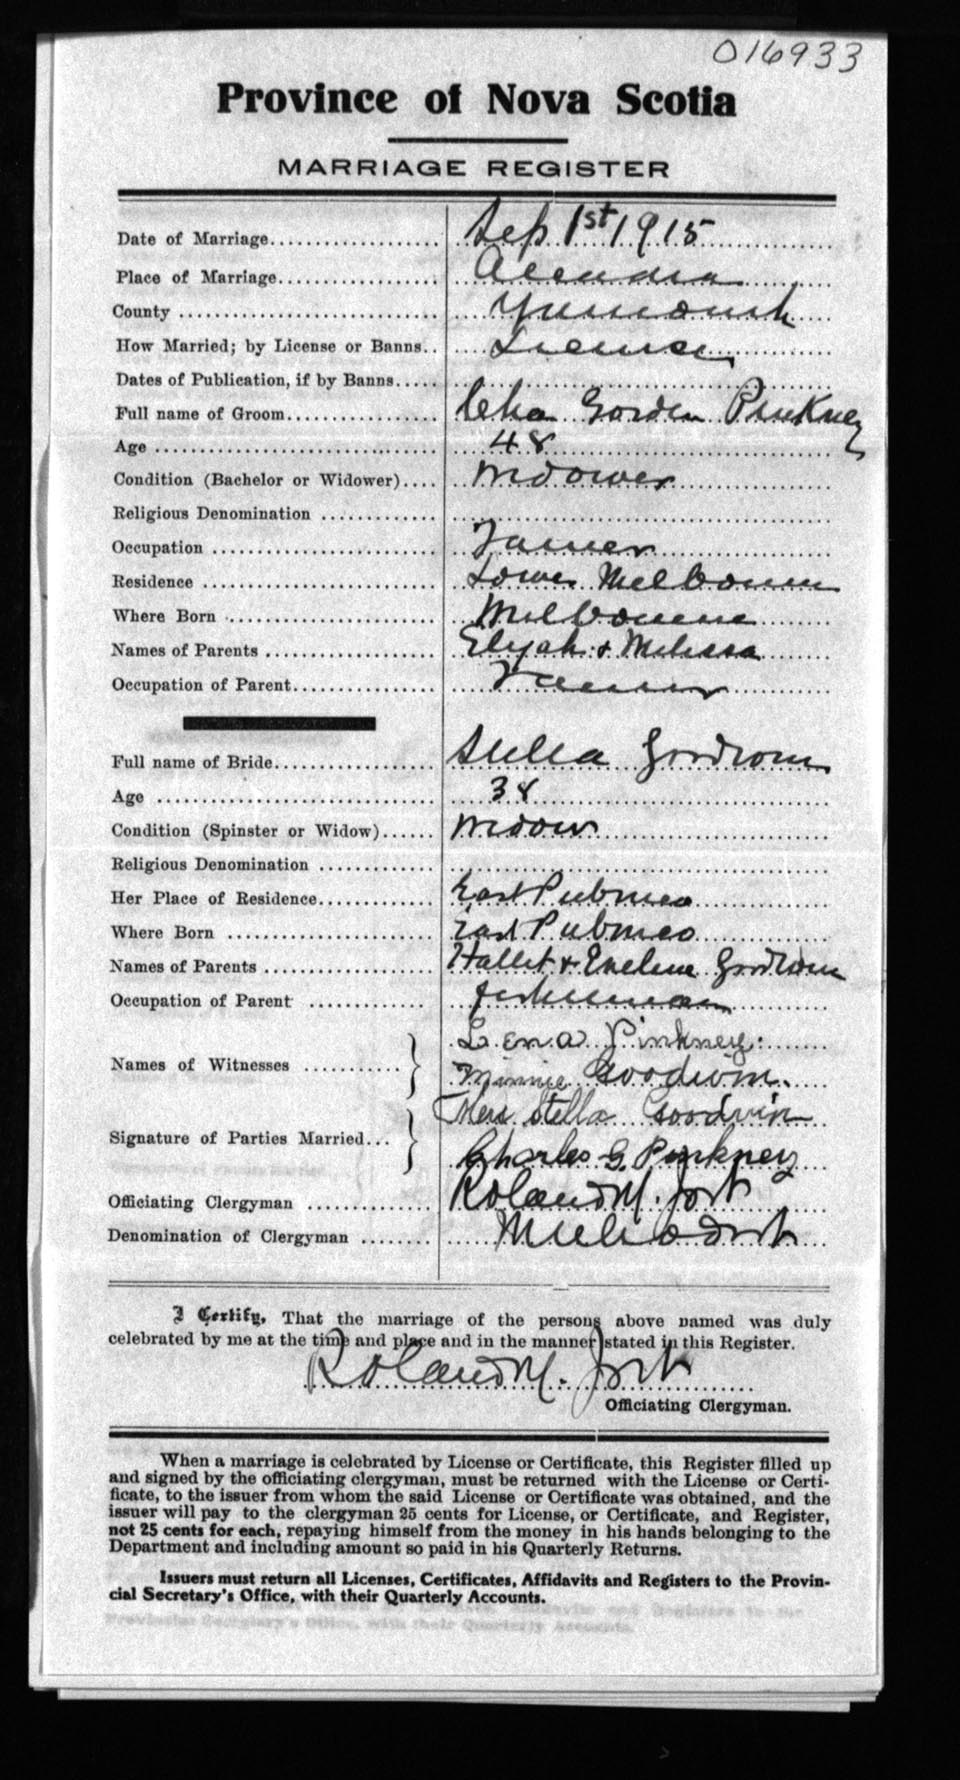 016933
Province of Nova Scotia
MARRIAGE REGISTER
Date of Marriage.................... Sep 1st 1915
Place of Marriage.................... Arcadia
County .................... Yarmouth
How Married; by License or Banns.. License
Dates of Publication, if by Banns.....
Full name of Groom.................... Chas Gorden Pinkney
Age .................... 48
Condition (Bachelor or Widower).... Widower
Religious Denomination ....................
Occupation .................... Farmer
Residence .................... Lower Melbourne
Where Born .................... Melbourne
Names of Parents .................... Elijah & Melissa
Occupation of Parent.................... Farmer
Full name of Bride.................... Stella Goodwin
Age .................... 38
Condition (Spinster or Widow)...... Widow
Religious Denomination ....................
Her Place of Residence.................... East Pubnico
Where Born .................... East Pubnico
Names of Parents .................... Hallet & Eveline Goodwin
Occupation of Parent .................... fisherman
Names of Witnesses ............ Lena Pinkney.
Minnie Goodwin.
Signature of Parties Married... Mrs Stella Goodwin
Charles G. Pinkney
Officiating Clergyman .............. Roland M.
Denomination of Clergyman ........ Methodist
I Certify, That the marriage of the persons above named was duly
celebrated by me at the time and place and in the manner stated in this Register.
Roland M.
Officiating Clergyman.
When a marriage is celebrated by License or Certificate, this Register filled up
and signed by the officiating clergyman, must be returned with the License or Certi-
ficate, to the issuer from whom the said License or Certificate was obtained, and the
issuer will pay to the clergyman 25 cents for License, or Certificate, and Register,
not 25 cents for each, repaying himself from the money in his hands belonging to the
Department and including amount so paid in his Quarterly Returns.
Issuers must return all Licenses, Certificates, Affidavits and Registers to the Provin-
cial Secretary's Office, with their Quarterly Accounts.